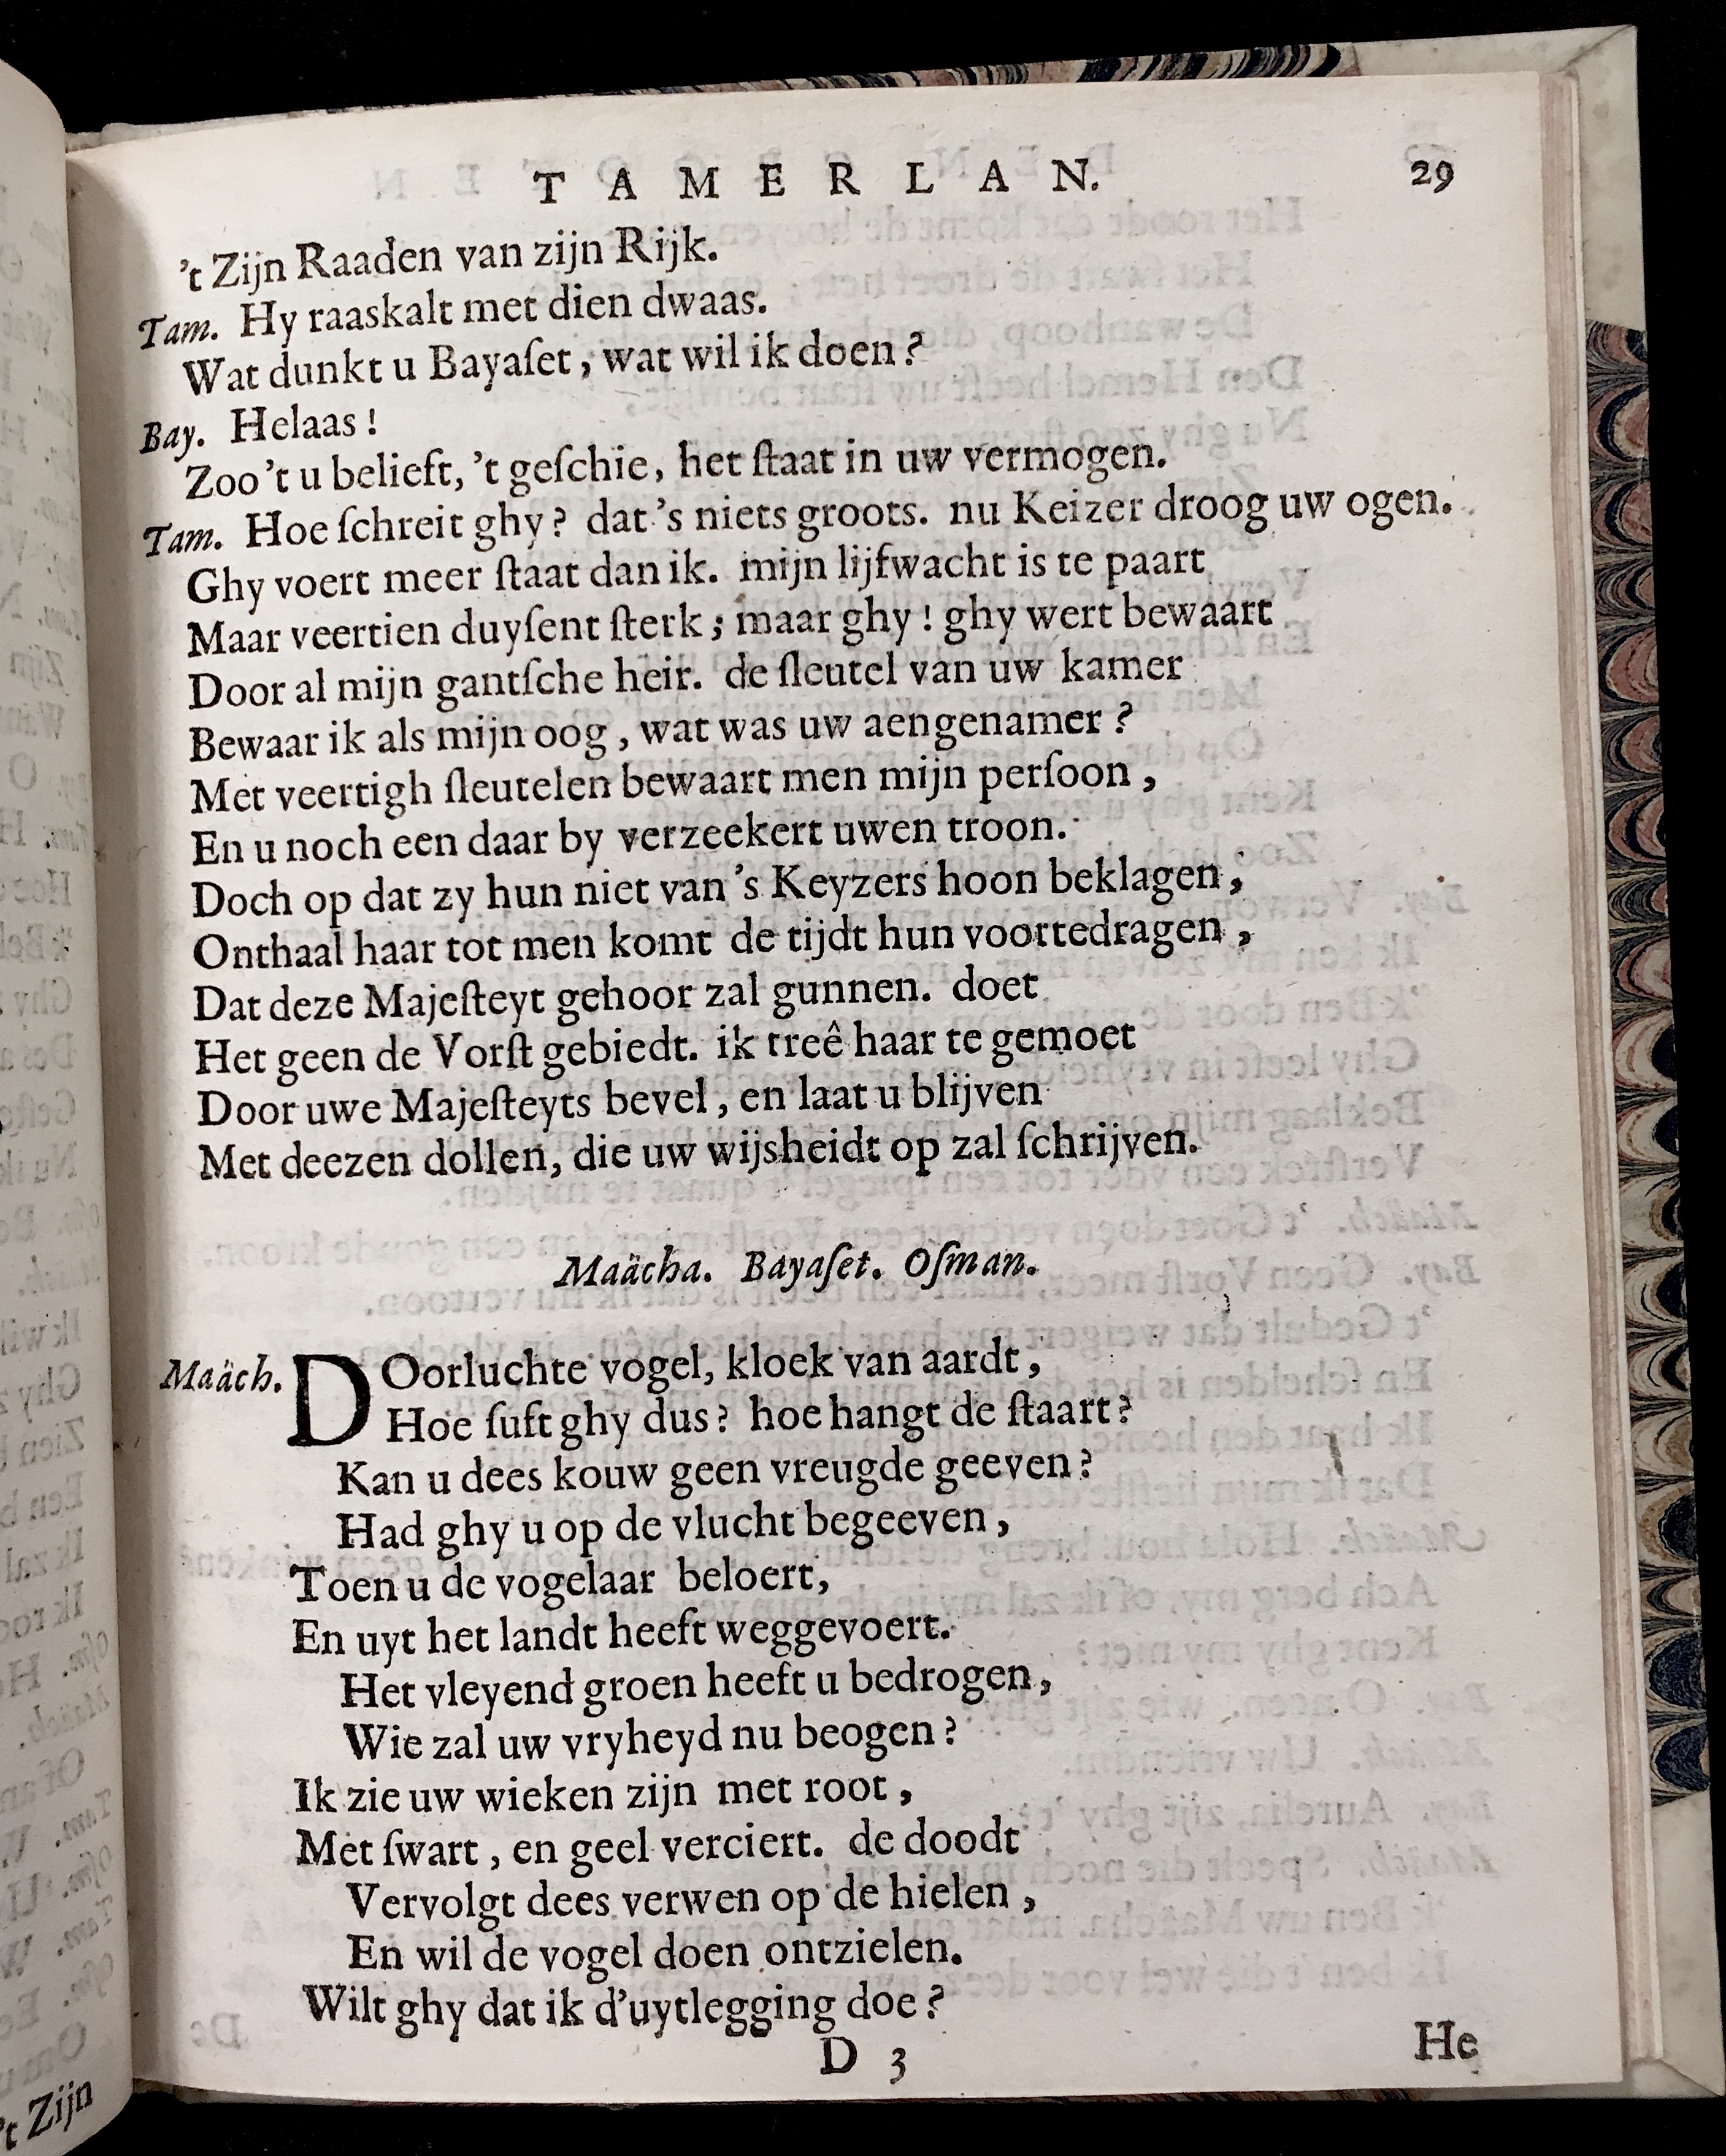 TAMERLAN. 29
't Zijn Raaden van zijn Rijk.
Tam. Hy raaskalt met dien dwaas.
Wat dunkt u Bayaſet, wat wil ik doen?
Bay. Helaas!
Zoo 't u belieft, 't geſchie, het ſtaat in uw vermogen.
Tam. Hoe ſchreit ghy? dat 's niets groots. nu Keizer droog uw ogen.
Ghy voert meer ſtaat dan ik. mijn lijfwacht is te paart
Maar veertien duyſent ſterk; maar ghy! ghy wert bewaart
Door al mijn gantſche heir. de ſleutel van uw kamer
Bewaar ik als mijn oog, wat was uw aengenamer?
Met veertigh ſleutelen bewaart men mijn perſoon,
En u noch een daar by verzeekert uwen troon.
Doch op dat zy hun niet van 's Keyzers hoon beklagen,
Onthaal haar tot men komt de tijdt hun voortedragen,
Dat deze Majeſteyt gehoor zal gunnen. doet
Het geen de Vorſt gebiedt. ik treê haar te gemoet
Door uwe Majeſteyts bevel, en laat u blijven
Met deezen dollen, die uw wijsheidt op zal ſchrijven.
Maächa. Bayaſet. Oſman.
Maäch. DOorluchte vogel, kloek van aardt,
Hoe ſuft ghy dus? hoe hangt de ſtaart?
Kan u dees kouw geen vreugde geeven?
Had ghy u op de vlucht begeeven,
Toen u de vogelaar beloert,
En uyt het landt heeft weggevoert.
Het vleyend groen heeft u bedrogen,
Wie zal uw vryheyd nu beogen?
Ik zie uw wieken zijn met root,
Met ſwart, en geel verciert. de doodt
Vervolgt dees verwen op de hielen,
En wil de vogel doen ontzielen.
Wilt ghy dat ik d'uytlegging doe?
D 3 He
't Zijn